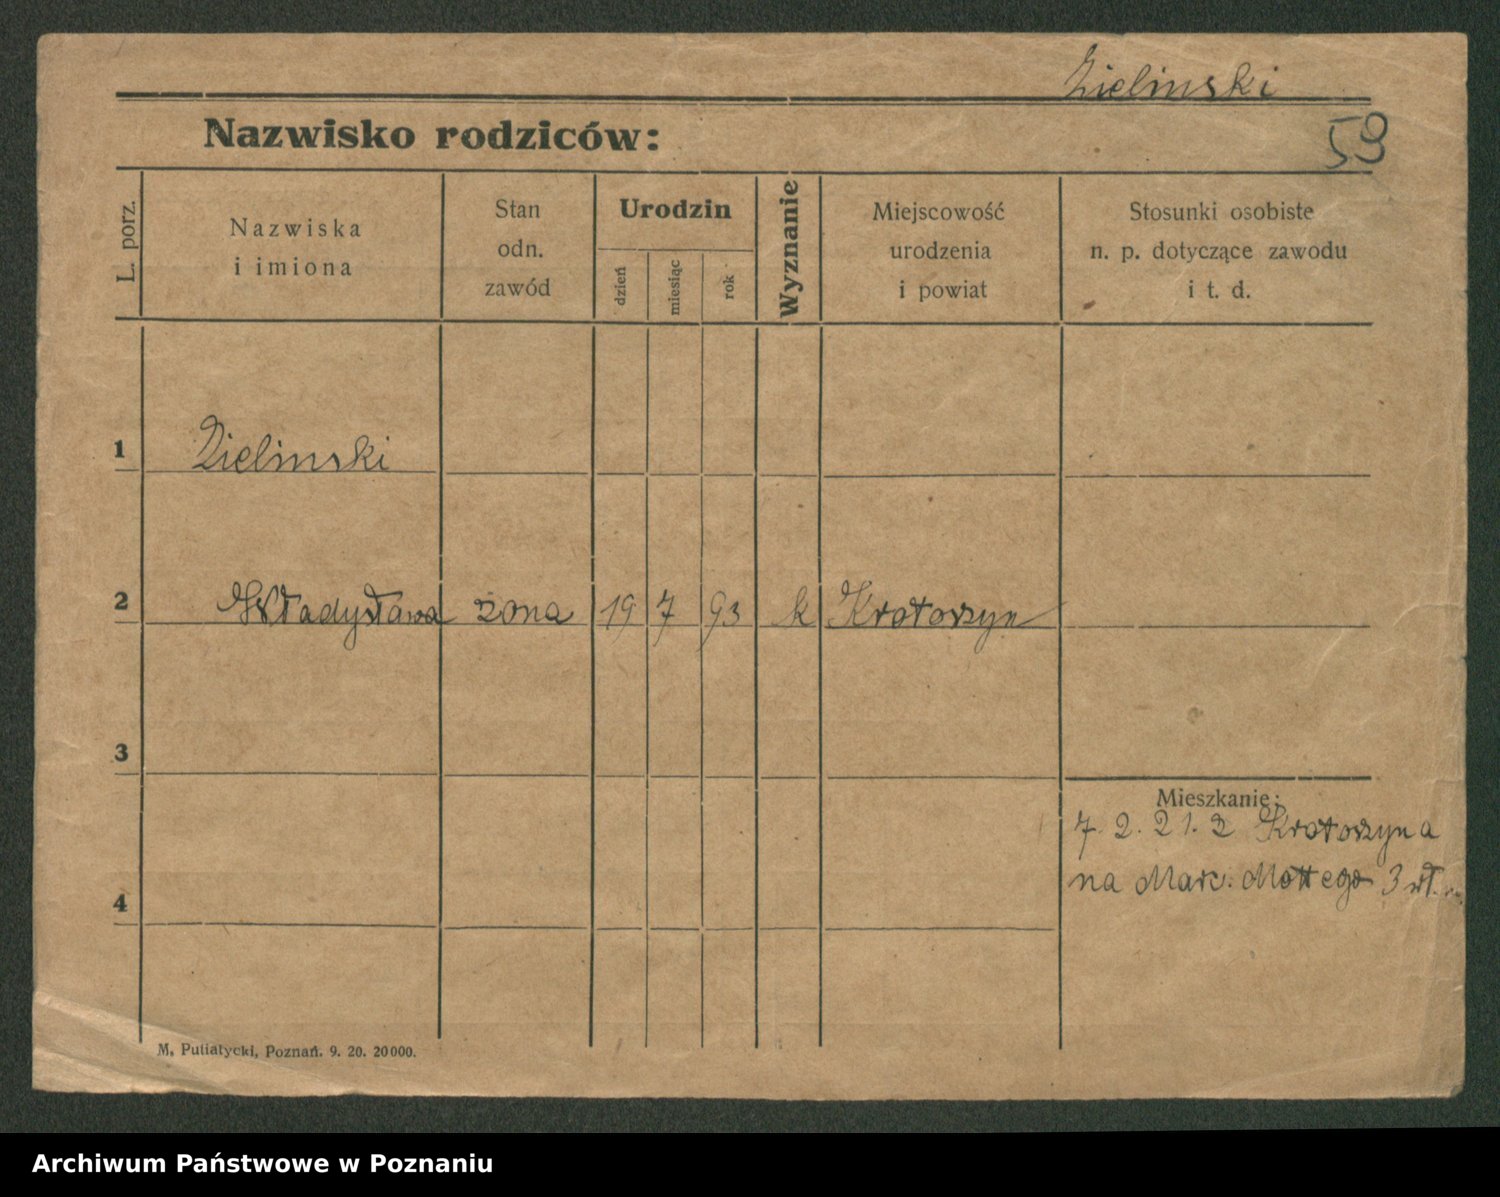 Zielinski
59
Nazwisko rodziców:
L. porz.
Nazwiska
i imiona
Stan
odn.
zawód
Urodzin
dzień
miesiąc
rok
Wyznanie
Miejscowość
urodzenia
i powiat
Stosunki osobiste
n. p. dotyczące zawodu
i t. d.
1 Zielinski
2 Władysława żona 19 7 93 k Krotoszyn
3
Mieszkanie:
7. 2. 21. z Krotoszyna
na Marc. Mottego 3
4
M. Putiatycki, Poznań. 9. 20. 20000.
Archiwum Państwowe w Poznaniu